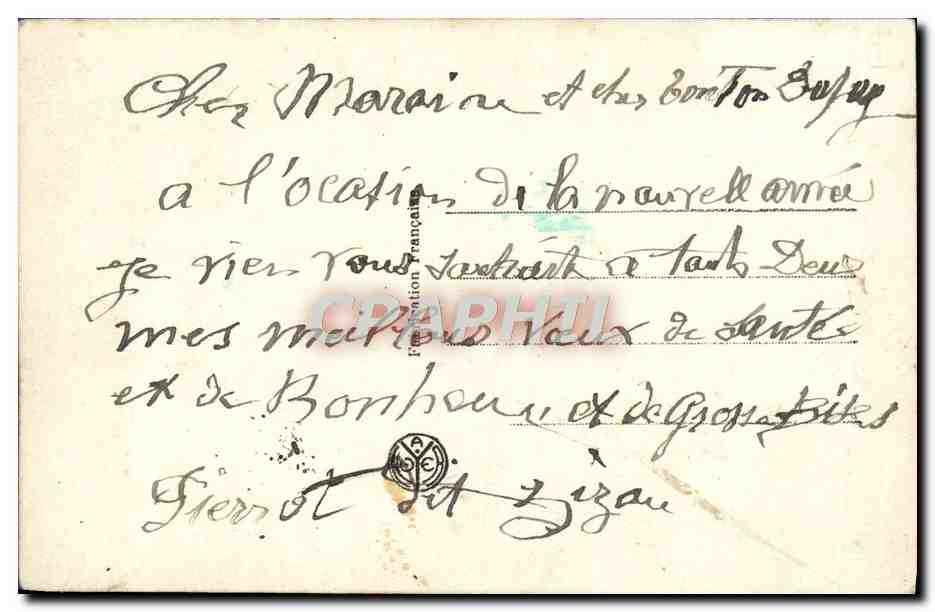 Cher Maraine et cher tonTon
a l'ocation de la nouvell année
je vien vous a touts Deux
mes meilleurs Vœux de santé
et de Bonheur et de Grosse Bises
Pierrot dit Zizou
Fabrication Française
CPAPHIL